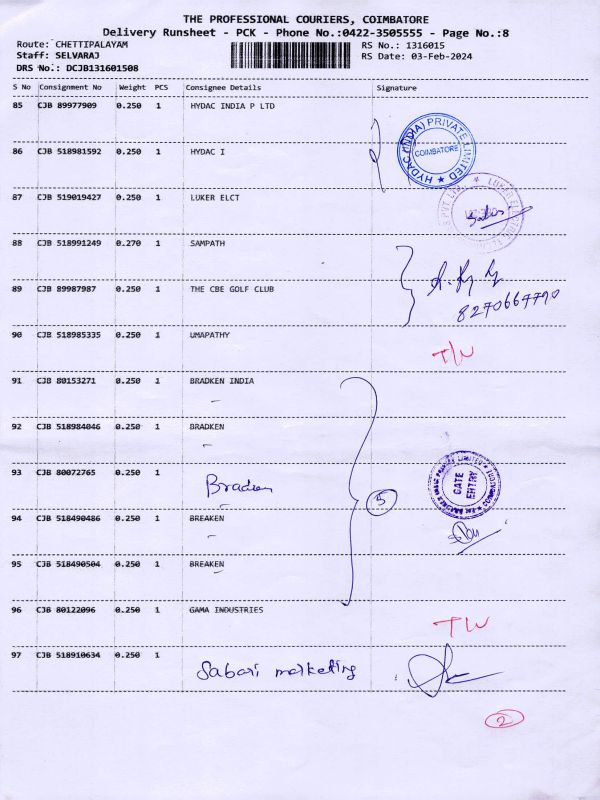 THE PROFESSIONAL COURIERS, COIMBATORE
Delivery Runsheet - PCK - Phone No.:0422-3505555 - Page No.:8
Route: CHETTIPALAYAM RS No.: 1316015
Staff: SELVARAJ RS Date: 03-Feb-2024
DRS No.: DCJB131601508
S No Consignment No Weight PCS Consignee Details Signature
85 CJB 89977909 0.250 1 HYDAC INDIA P LTD
HYDAC (INDIA) PRIVATE LIMITED
COIMBATORE
86 CJB 518981592 0.250 1 HYDAC I
87 CJB 519019427 0.250 1 LUKER ELCT
88 CJB 518991249 0.270 1 SAMPATH
89 CJB 89987987 0.250 1 THE CBE GOLF CLUB
8270667770
90 CJB 518985335 0.250 1 UMAPATHY
T/W
91 CJB 80153271 0.250 1 BRADKEN INDIA
92 CJB 518984046 0.250 1 BRADKEN
93 CJB 80072765 0.250 1 Bradken
5
GATE
ENTRY
94 CJB 518490486 0.250 1 BREAKEN
95 CJB 518490504 0.250 1 BREAKEN
96 CJB 80122096 0.250 1 GAMA INDUSTRIES
T/W
97 CJB 518910634 0.250 1 Sabari marketing
2